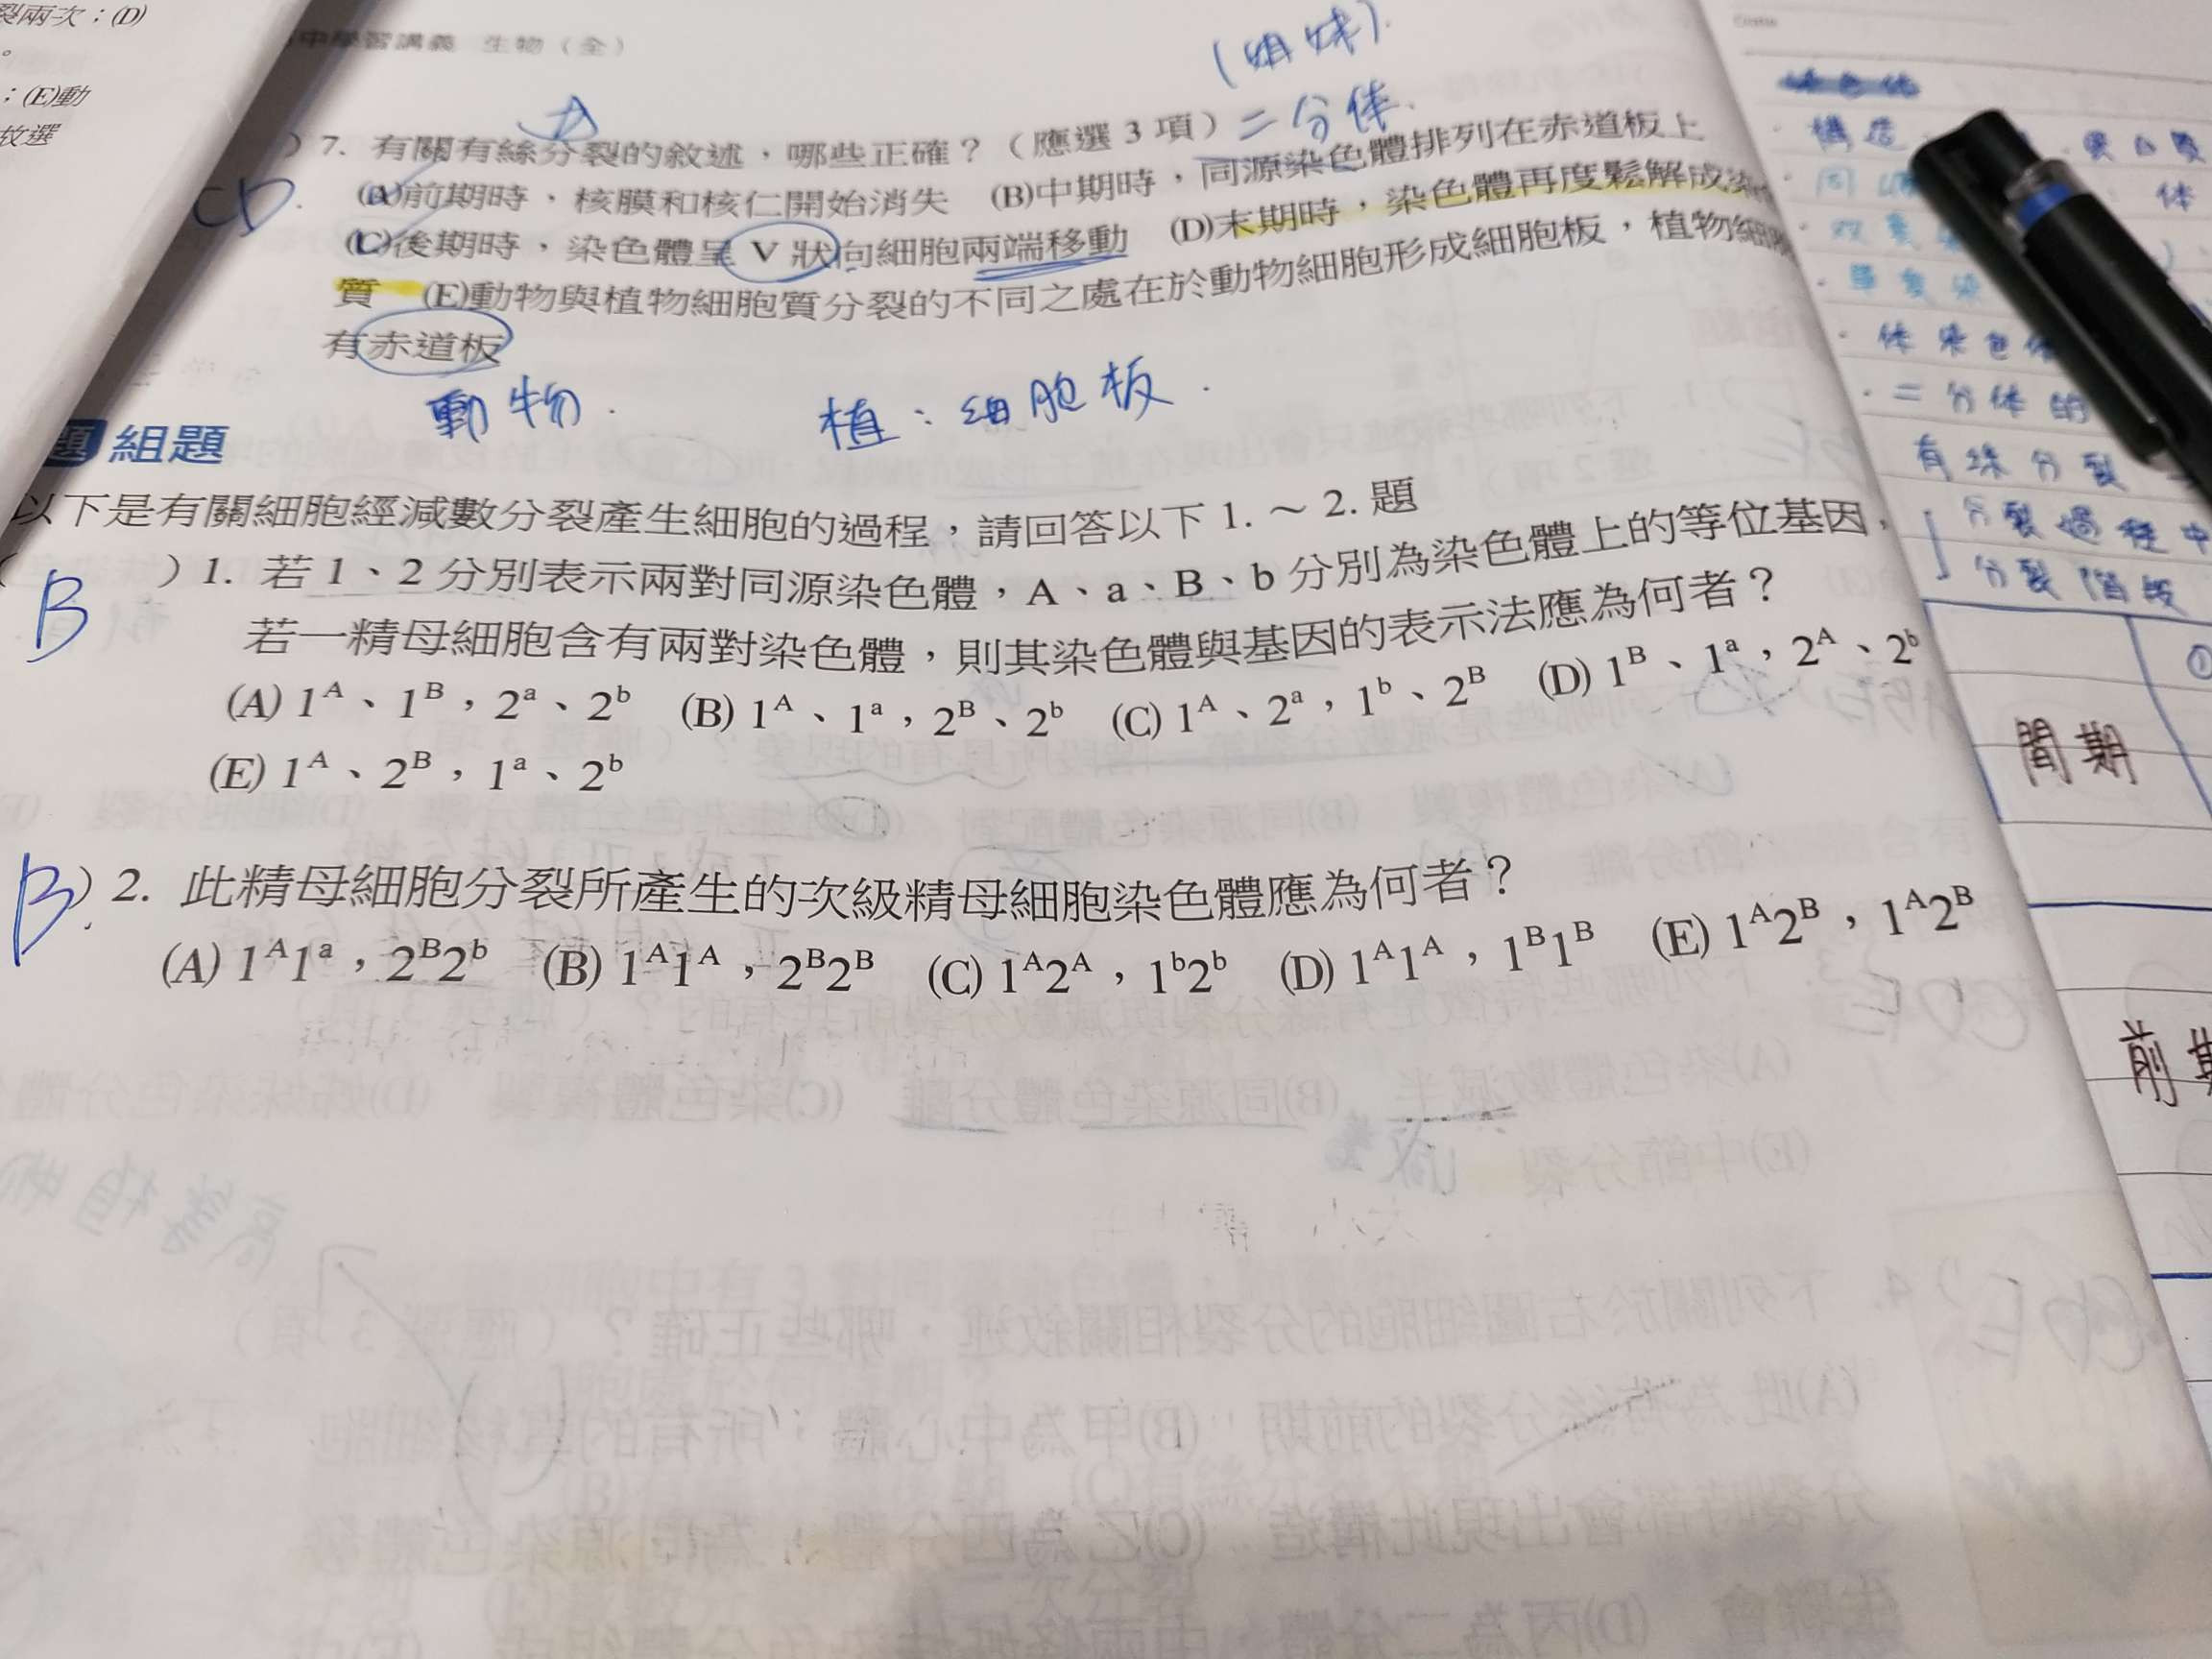 裂兩次；(D)
。
；(E)動
故選
中學習講義 生物（全）
(姐妹).
A
二分体.
CD.
) 7. 有關有絲分裂的敘述，哪些正確？（應選 3 項）
(A)前期時，核膜和核仁開始消失 (B)中期時，同源染色體排列在赤道板上
(C)後期時，染色體呈 V 狀向細胞兩端移動 (D)末期時，染色體再度鬆解成染
質 (E)動物與植物細胞質分裂的不同之處在於動物細胞形成細胞板，植物細胞
有赤道板
動物. 植：細胞板.
題 組題
以下是有關細胞經減數分裂產生細胞的過程，請回答以下 1. ～ 2. 題
B
( ) 1. 若 1、2 分別表示兩對同源染色體，A、a、B、b 分別為染色體上的等位基因，
若一精母細胞含有兩對染色體，則其染色體與基因的表示法應為何者？
(A) 1ᴬ、1ᴮ，2ᵃ、2ᵇ (B) 1ᴬ、1ᵃ，2ᴮ、2ᵇ (C) 1ᴬ、2ᵃ，1ᵇ、2ᴮ (D) 1ᴮ、1ᵃ，2ᴬ、2ᵇ
(E) 1ᴬ、2ᴮ，1ᵃ、2ᵇ
B.
) 2. 此精母細胞分裂所產生的次級精母細胞染色體應為何者？
(A) 1ᴬ1ᵃ，2ᴮ2ᵇ (B) 1ᴬ1ᴬ，2ᴮ2ᴮ (C) 1ᴬ2ᴬ，1ᵇ2ᵇ (D) 1ᴬ1ᴬ，1ᴮ1ᴮ (E) 1ᴬ2ᴮ，1ᴬ2ᴮ
構造
体
体染色体
二分体的
有絲分裂
分裂過程中
分裂階段
①
間期
前期